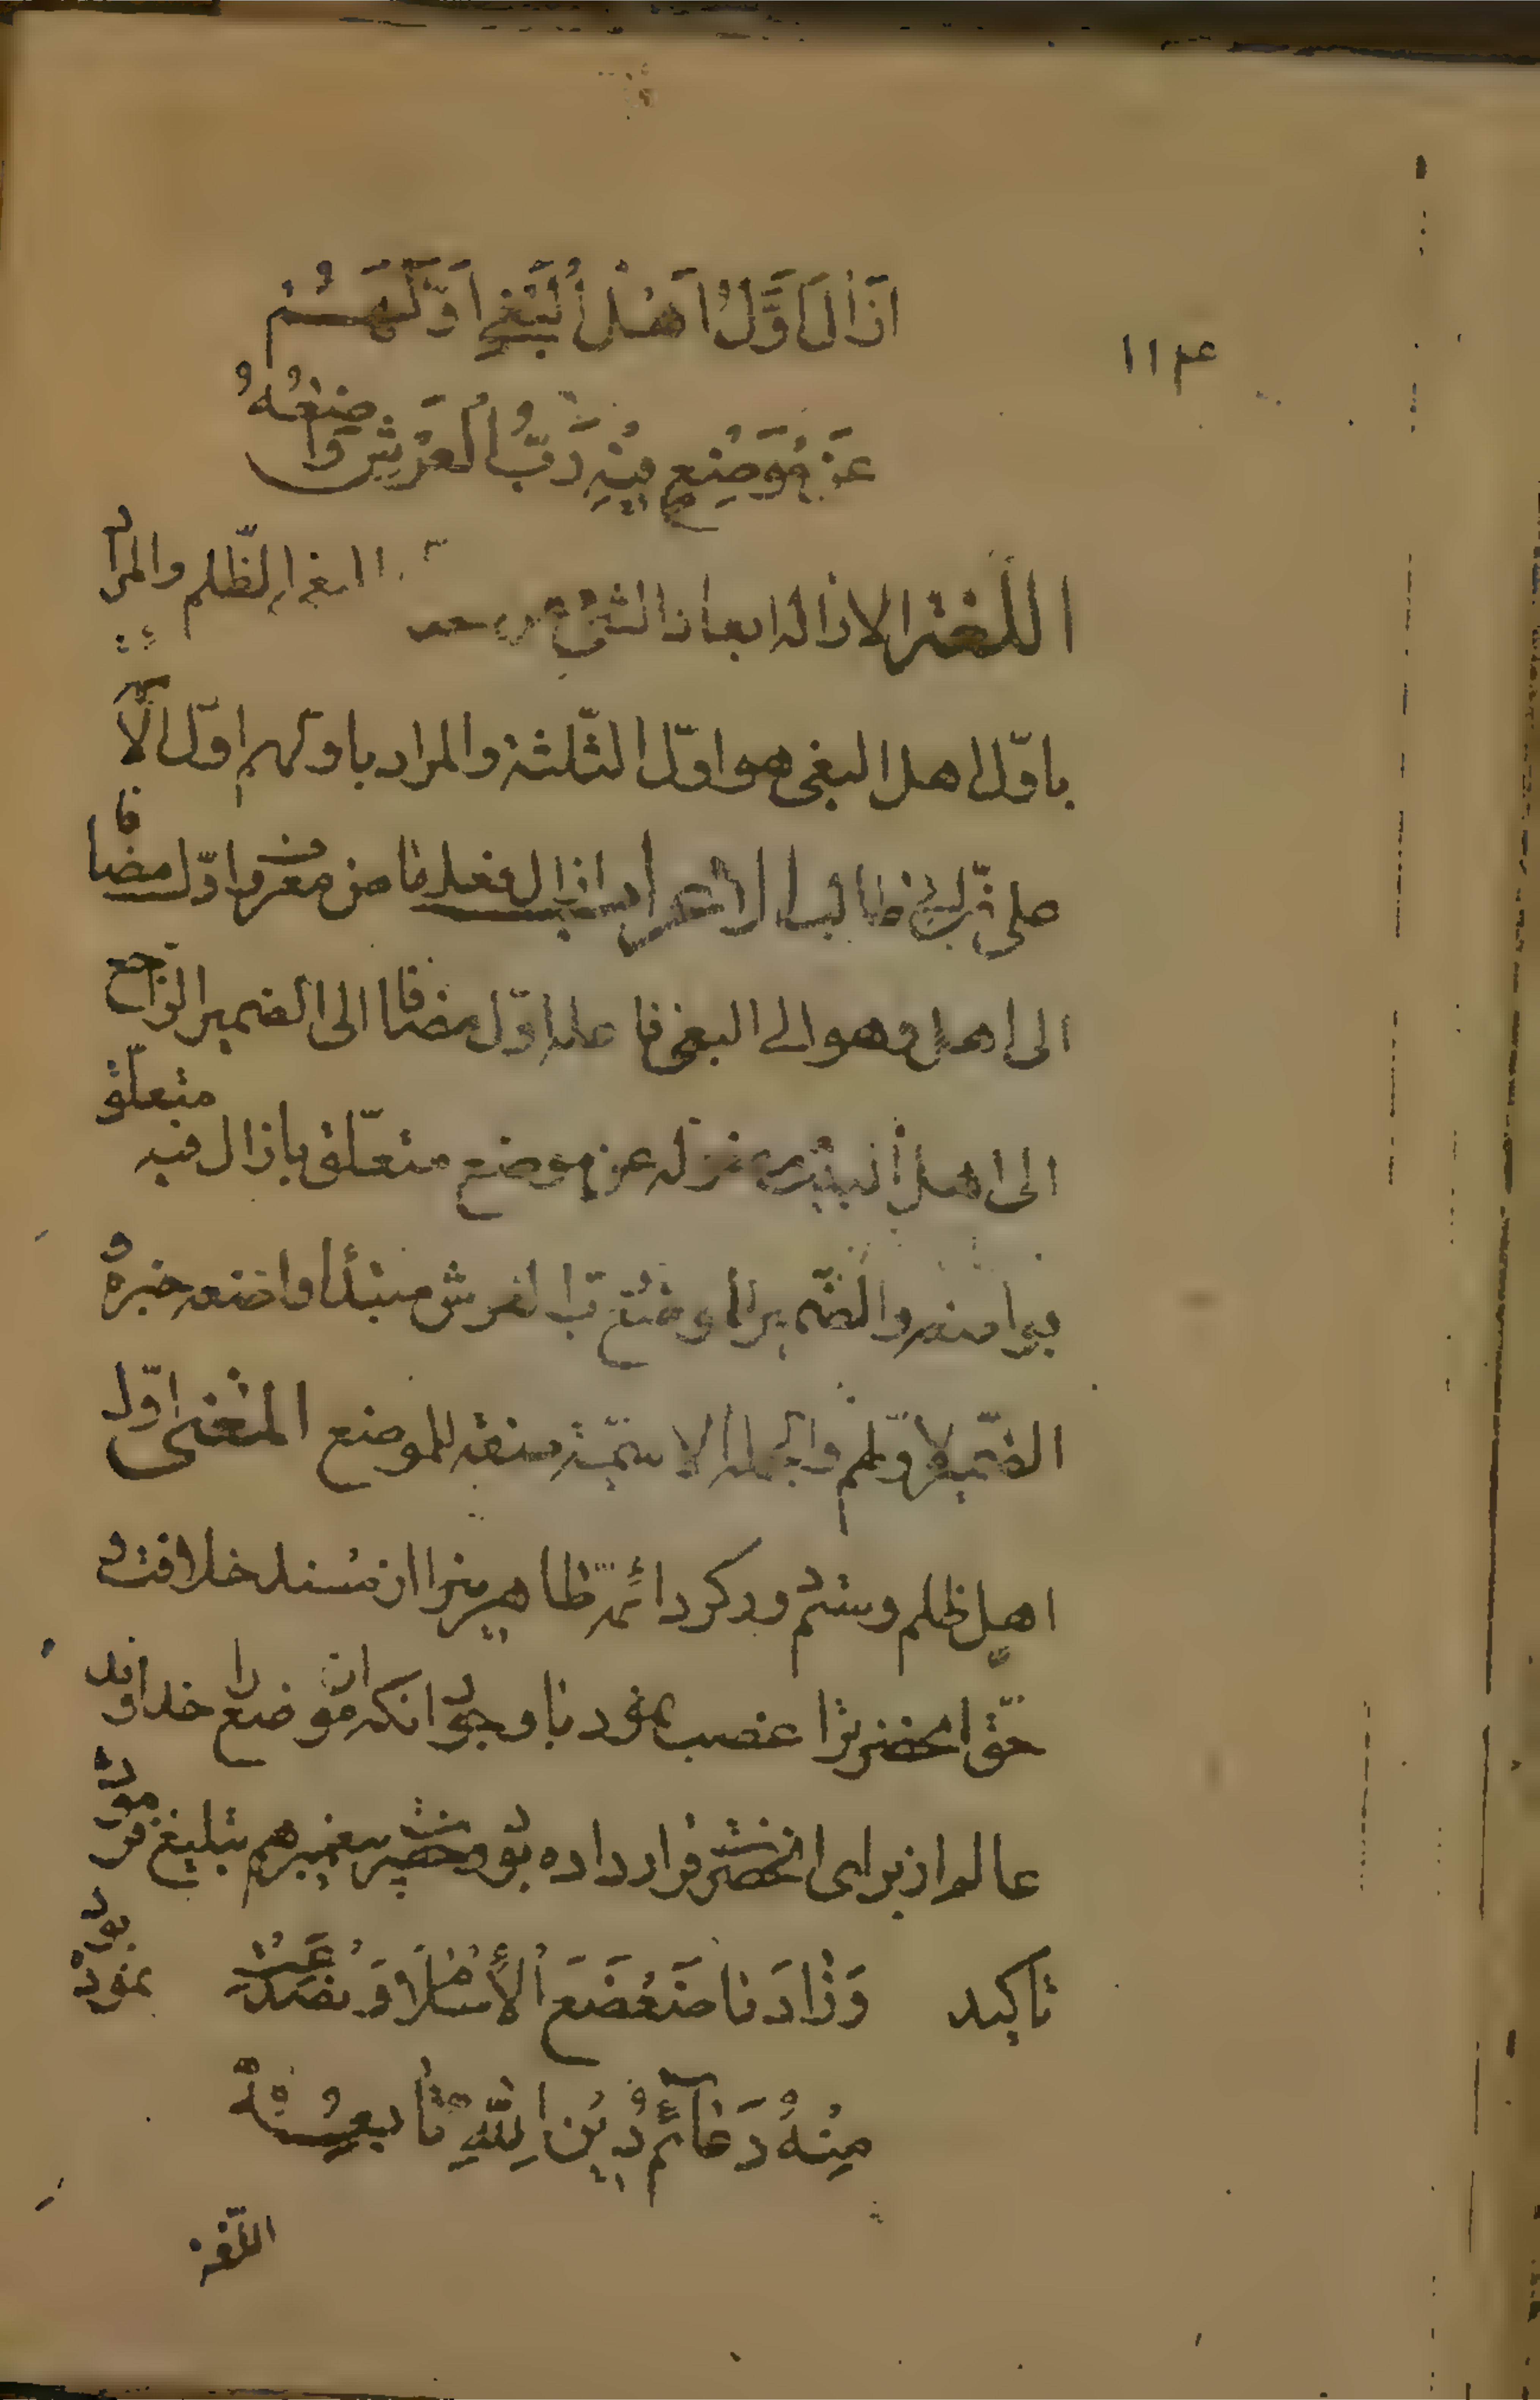 ۱۱۴
اَزَالَ اَوَّلُ اَهْلِ الْبَغْيِ اَوَّلَهُمْ
عَنْ مَوْضِعٍ فِيْهِ رَبُّ الْعَرْشِ وَاضِعُهُ
اللّغة الازالة ابعاد الشئ عن البغى الظّلم والمراد
باوّل اهل البغى هو اوّل الثّلثة والمراد باولهم اوّل الا
على بن ابى طالب الاعراب ازال فعل ماض معروف اوّل مضافا
الى اهل وهو الى البغى فاعله اوّل مضافا الى الضمير الراجع
الى اهل عن موضع متعلّق بازال فيه متعلّق
بواضعه والضّمير للموضع رب العرش مبتدأ واضعه خبره و
الضّمير لاوّلهم والجملة الاسميّة صفة للموضع المعنى اوّل
اهل ظلم وستم دور كرد ائمّه طاهرين را از مسند خلافت و
حقّ انحضرت را غصب نمود با وجود انكه ان موضع را خداوند
عالم از براى انحضرت قرار داده بود وحضرت پيغمبر هم تبليغ فرموده بود
تاكيد نمود وَزَادَ مَا ضَعْضَعَ الْاِسْلَامَ وَ
مِنْهُ دَعَائِمُ دِيْنِ اللّٰهِ تَابِعُهُ
اللّغة